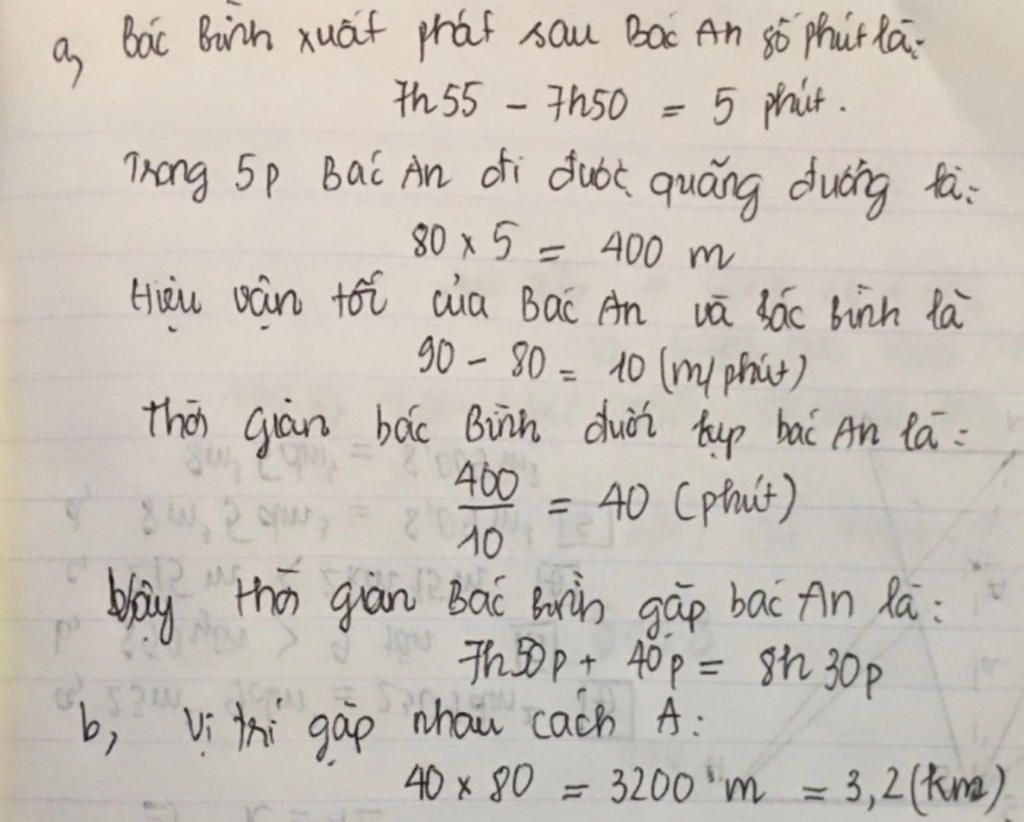 a, Bác Bình xuất phát sau Bác An số phút là:
7h55 - 7h50 = 5 phút.
Trong 5p Bác An đi được quãng đường là:
80 x 5 = 400 m
Hiệu vận tốc của Bác An và bác Bình là
90 - 80 = 10 (m/phút)
Thời gian bác Bình đuổi kịp bác An là:
400/10 = 40 (phút)
Vậy thời gian Bác Bình gặp bác An là:
7h50p + 40p = 8h30p
b, Vị trí gặp nhau cách A:
40 x 80 = 3200 m = 3,2 (km)